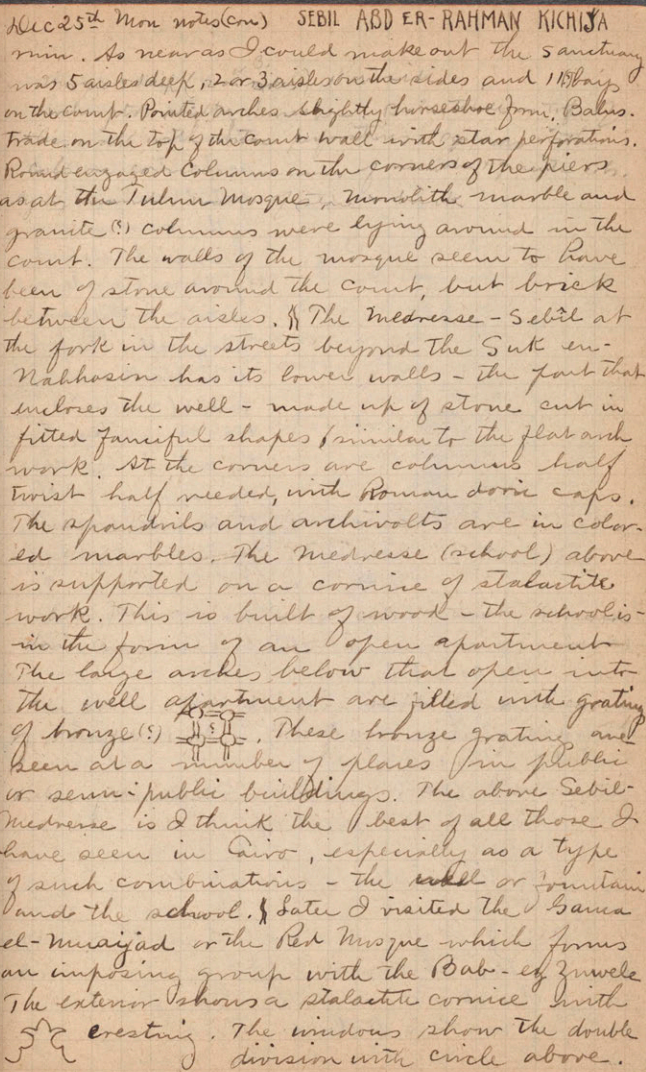 Dec 25th Mon notes (con) SEBIL ABD ER-RAHMAN KICHIJA
min. As near as I could make out the sanctuary
was 5 aisles deep, 2 or 3 aisles on the sides and 11 bays
on the court. Pointed arches slightly horseshoe form. Balus-
trade on the top of the court wall with star perforations.
Round engaged columns on the corners of the piers
as at the Tulun Mosque. Monolith marble and
granite (?) columns were lying around in the
court. The walls of the mosque seem to have
been of stone around the court, but brick
between the aisles. The Medresse-Sebil at
the fork in the streets beyond the Suk en-
Nahhasin has its lower walls - the part that
encloses the well - made up of stone cut in
fitted fanciful shapes similar to the flat arch
work. At the corners are columns half
twist half reeded, with Roman doric caps.
The spandrils and archivolts are in color-
ed marbles. The Medresse (school) above
is supported on a cornice of stalactite
work. This is built of wood - the school is -
in the form of an open apartment
The large arches below that open into
the well apartment are filled with grating
of bronze (?) . These bronze grating are
seen at a number of places in public
or semi-public buildings. The above Sebil-
Medresse is I think the best of all those I
have seen in Cairo, especially as a type
of such combinations - the well or fountain
and the school. Later I visited the Gamea
el-Muaijad or the Red Mosque which forms
an imposing group with the Bab-ez Zuwele
The exterior shows a stalactite cornice with
cresting. The windows show the double
division with circle above.